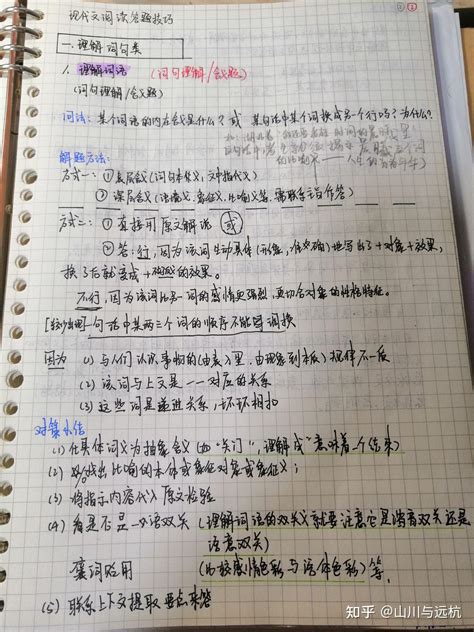 现代文阅读答题技巧
一. 理解词句类
1. 理解词语 (词句理解/含义题)
(词句理解/含义题)
问法: 某个词语的内在含义是什么? 或 某句话中某个词换成另一个行吗? 为什么?
解题方法:
方式一: ① 表层含义(词句本义, 文中指代义)
② 深层含义(语境义、象征义、比喻义等, 需联系主旨作答)
方式二: ① 直接用原文解说 (或)
② 答: 行, 因为该词生动具体(形象, 准确)地写出了+对象+效果,
换了后就变成+的效果。
不行, 因为该词比另一词的感情更强烈, 更切合对象的性格特征。
一句话中某两三个词的顺序不能调换
因为 (1) 与人们认识事物的(由表及里, 由现象到本质)规律不一致
(2) 该词与上文是一一对应的关系
(3) 这些词是递进关系, 环环相扣
对策小结
(1) 化具体词义为抽象含义 (如“关门”, 理解成“意味着一个结束”)
(2) 找出比喻的本体或象征对象或象征义;
(3) 将指示内容代入原文检验
(4) 看是不是一语双关 (理解词语的双关义就要注意它是谐音双关还是
语意双关)
褒词贬用 (比较感情色彩与语体色彩)等,
(5) 联系上下文提取要点来答
知乎 @山川与远杭